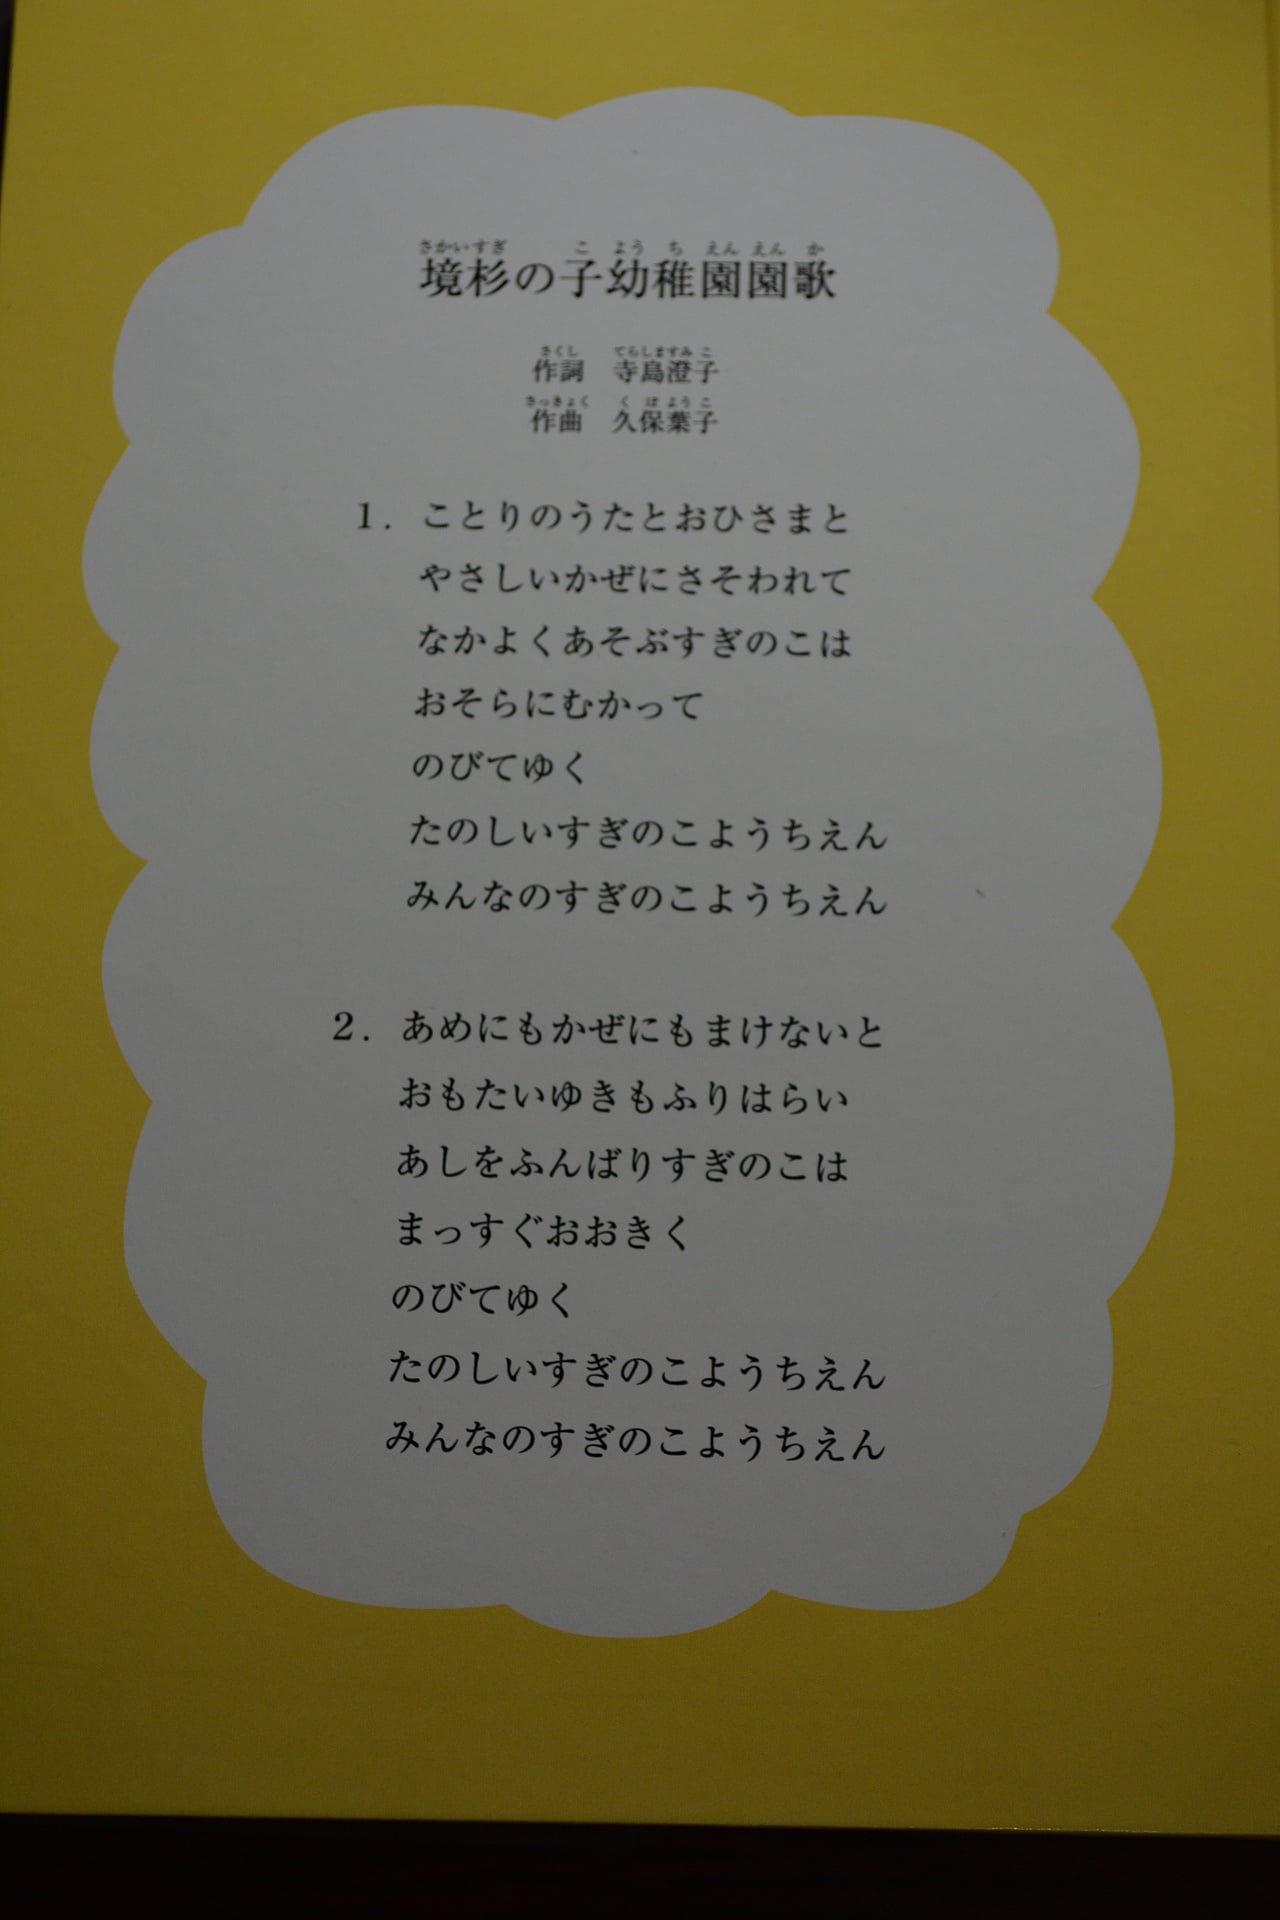 境杉の子幼稚園園歌
作詞　寺島澄子
作曲　久保葉子
1．ことりのうたとおひさまと
やさしいかぜにさそわれて
なかよくあそぶすぎのこは
おそらにむかって
のびてゆく
たのしいすぎのこようちえん
みんなのすぎのこようちえん
2．あめにもかぜにもまけないと
おもたいゆきもふりはらい
あしをふんばりすぎのこは
まっすぐおおきく
のびてゆく
たのしいすぎのこようちえん
みんなのすぎのこようちえん